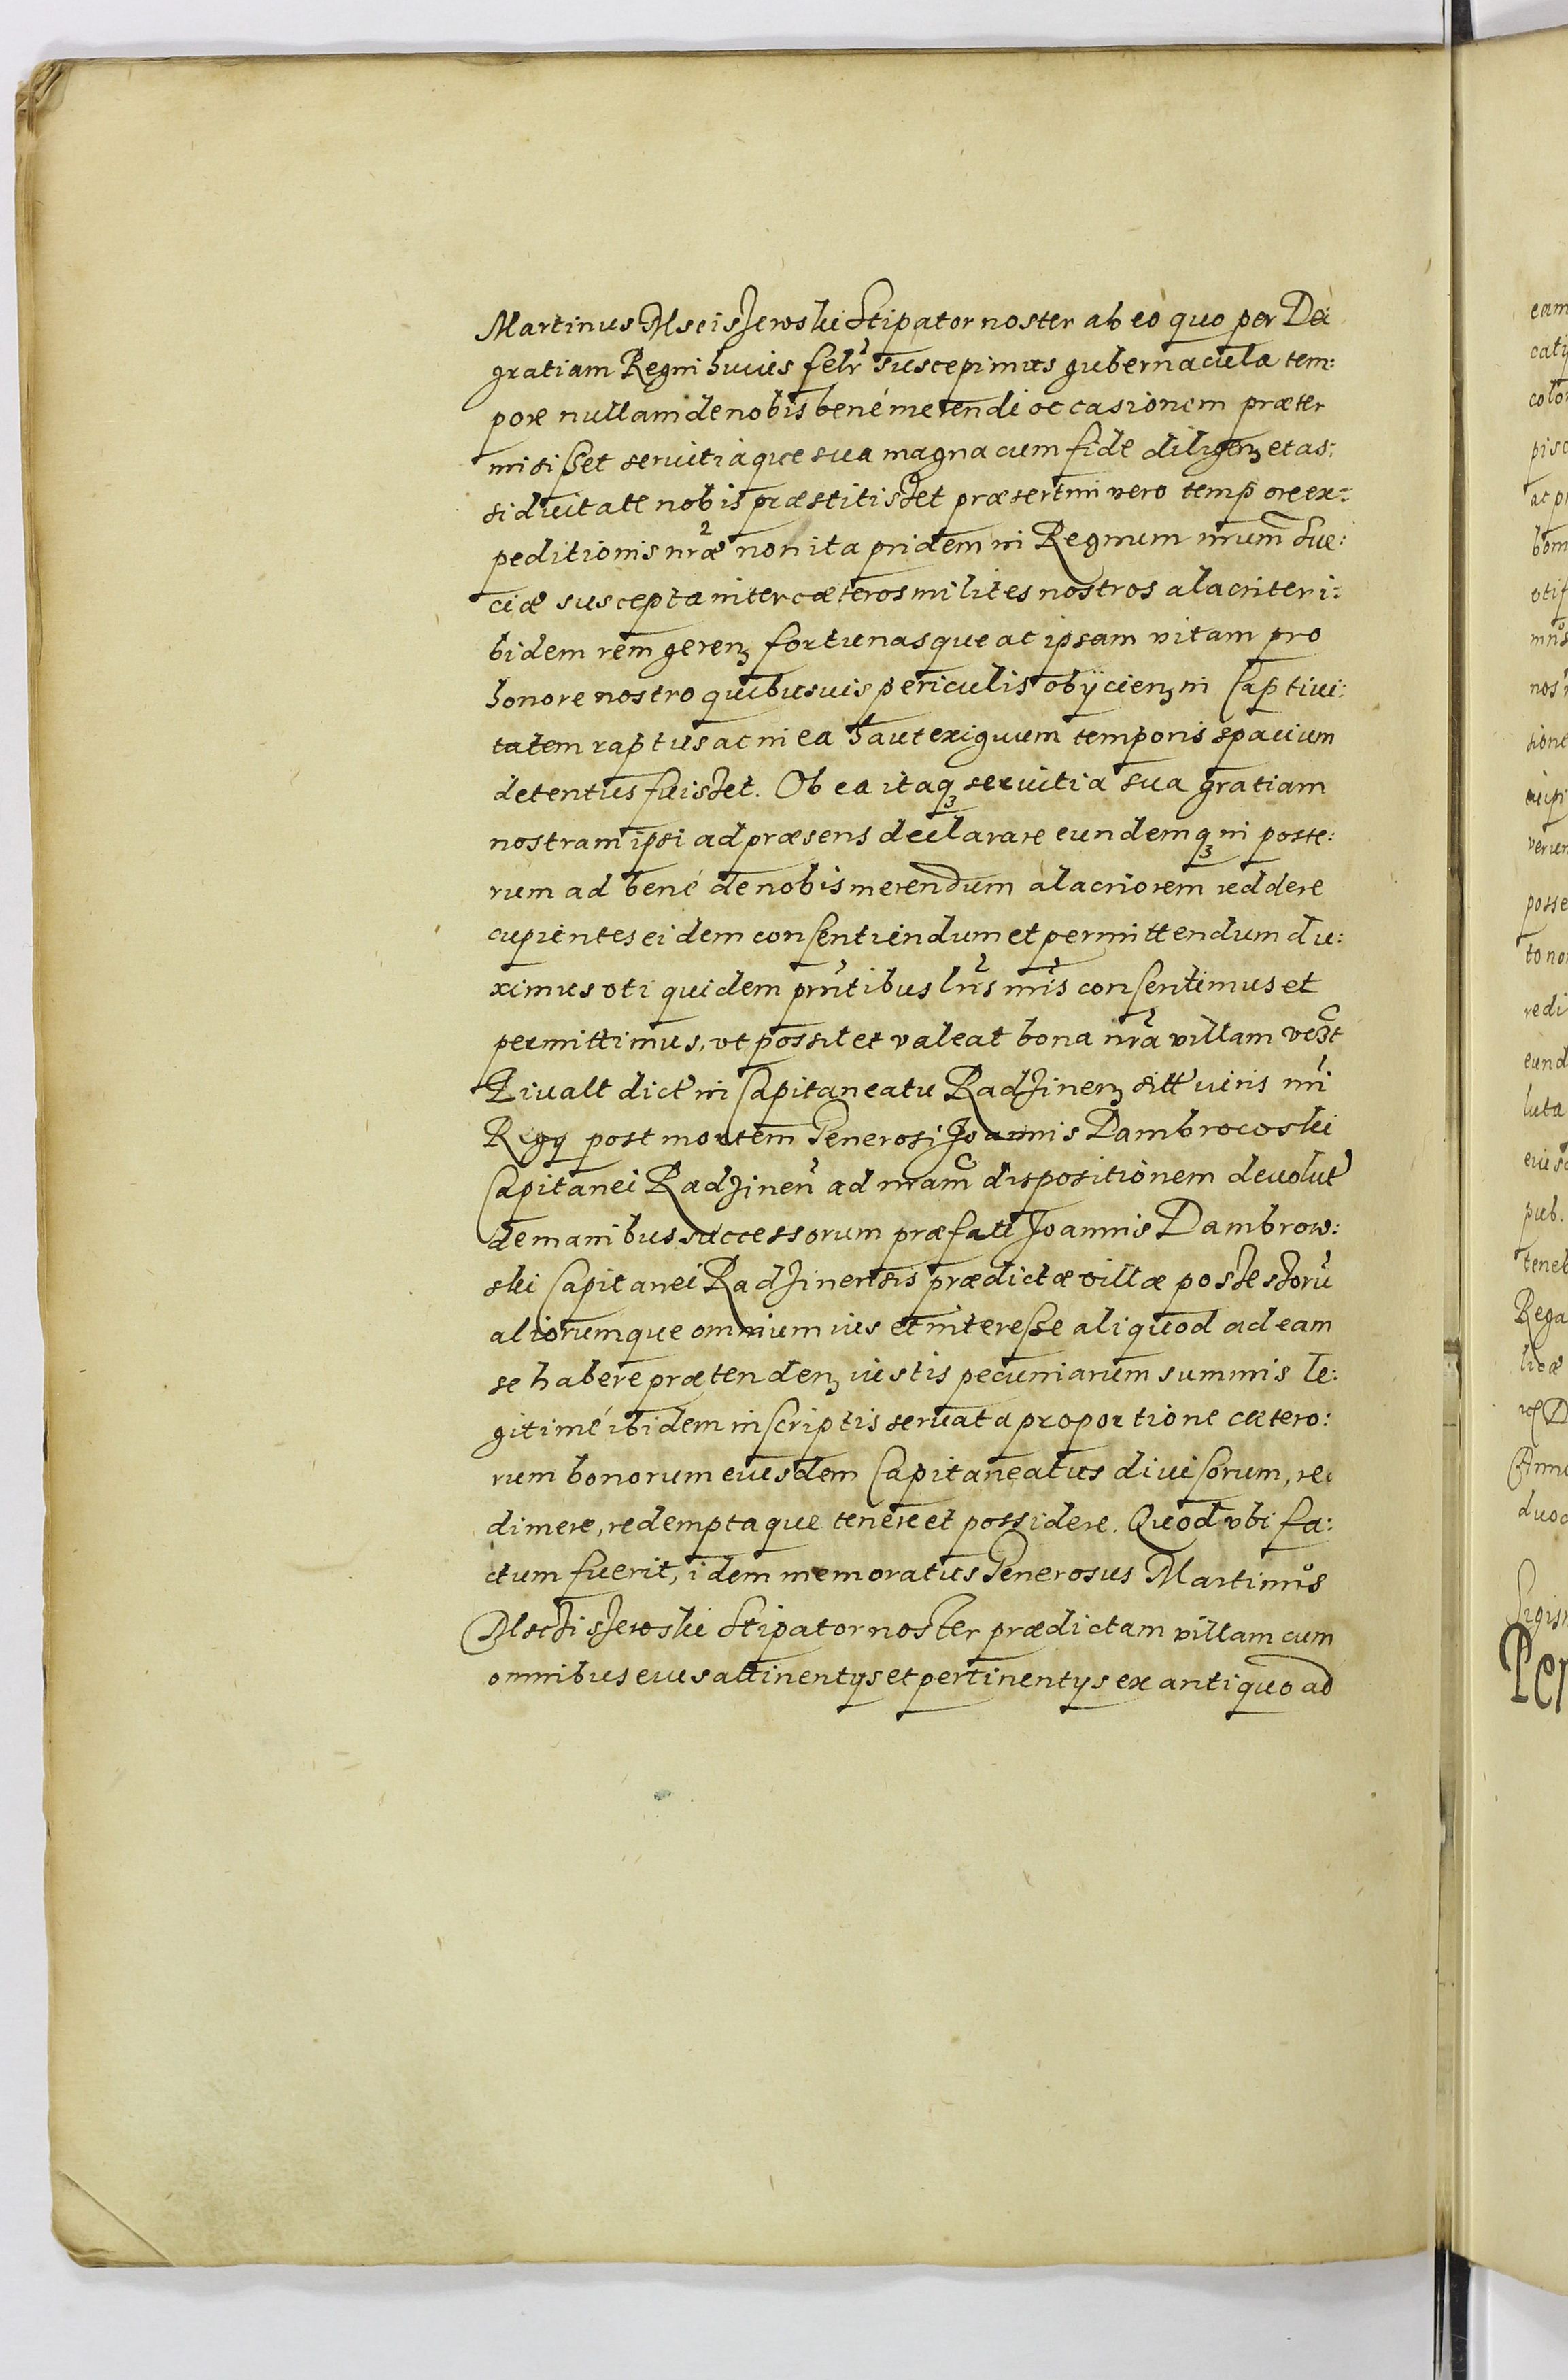 Martinus Msciszewski Stipator noster ab eò quo per Dei
gratiam Regni huius felr suscepimus gubernacula tem:
pore nullam de nobis bené merendi occasionem præter
misisset seruitiaque sua magna cum fide diligenʒ et as:
siduitate nobis præstitisset præsertim vero tempore ex:
peditionis nræ non ita pridem in Regnum nrum Sue:
ciæ suscepta inter cæteros milites nostros alacriter i:
bidem rem gerenʒ fortunasque ac ipsam vitam pro
honore nostro quibusuis periculis obijcienʒ in Captiui:
tatem raptus ac in ea haut exiguum temporis spacium
detentus fuisset. Ob ea itaqʒ seruitia sua gratiam
nostram ipsi ad præsens declarare eundemqʒ in poste:
rum ad bené de nobis merendum alacriorem reddere
cupientes eidem consentiendum et permittendum du:
ximus vti quidem prntibus lris nris consentimus et
permittimus, vt possit et valeat bona nra villam
dict in Capitaneatu Radzinenʒ sitt
Regij post mortem Generosi Joannis Dambrowski
Capitanei Radzinen ad nram dispositionem deuolut
de manibus successorum præfati Joannis Dambrow:
ski Capitanei Radzinensis prædictæ villæ possessorū
aliorumque omnium ius et interesse aliquod ad eam
se habere prætendenʒ iustis pecuniarum summis le:
gitimé ibidem inscriptis seruata proportione cætero:
rum bonorum eiusdem Capitaneatus diuisorum, re
dimere, redemptaque tenere et possidere. Quod vbi fa:
ctum fuerit, idem memoratus Generosus Martinus
Mscziszewski Stipator noster prædictam villam cum
omnibus eius attinentijs et pertinentijs ex antiquo ad